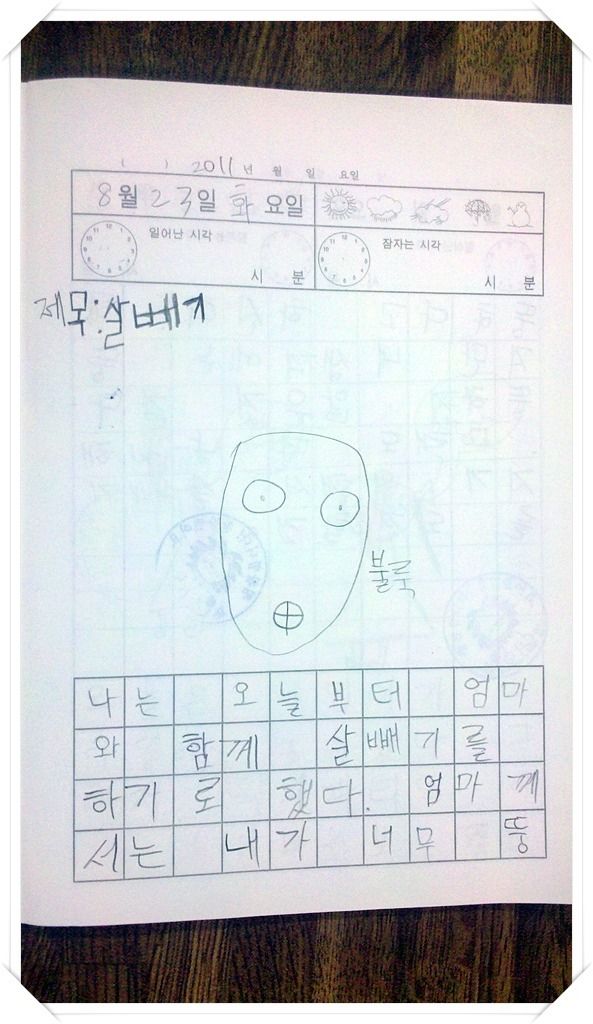 ( ) 2011년 월 일 요일
8월 23일 화요일
일어난 시각
시 분
잠자는 시각
시 분
제목:살빼기
불룩
나는 오늘부터 엄마
와 함께 살빼기를
하기로 했다. 엄마께
서는 내가 너무 뚱